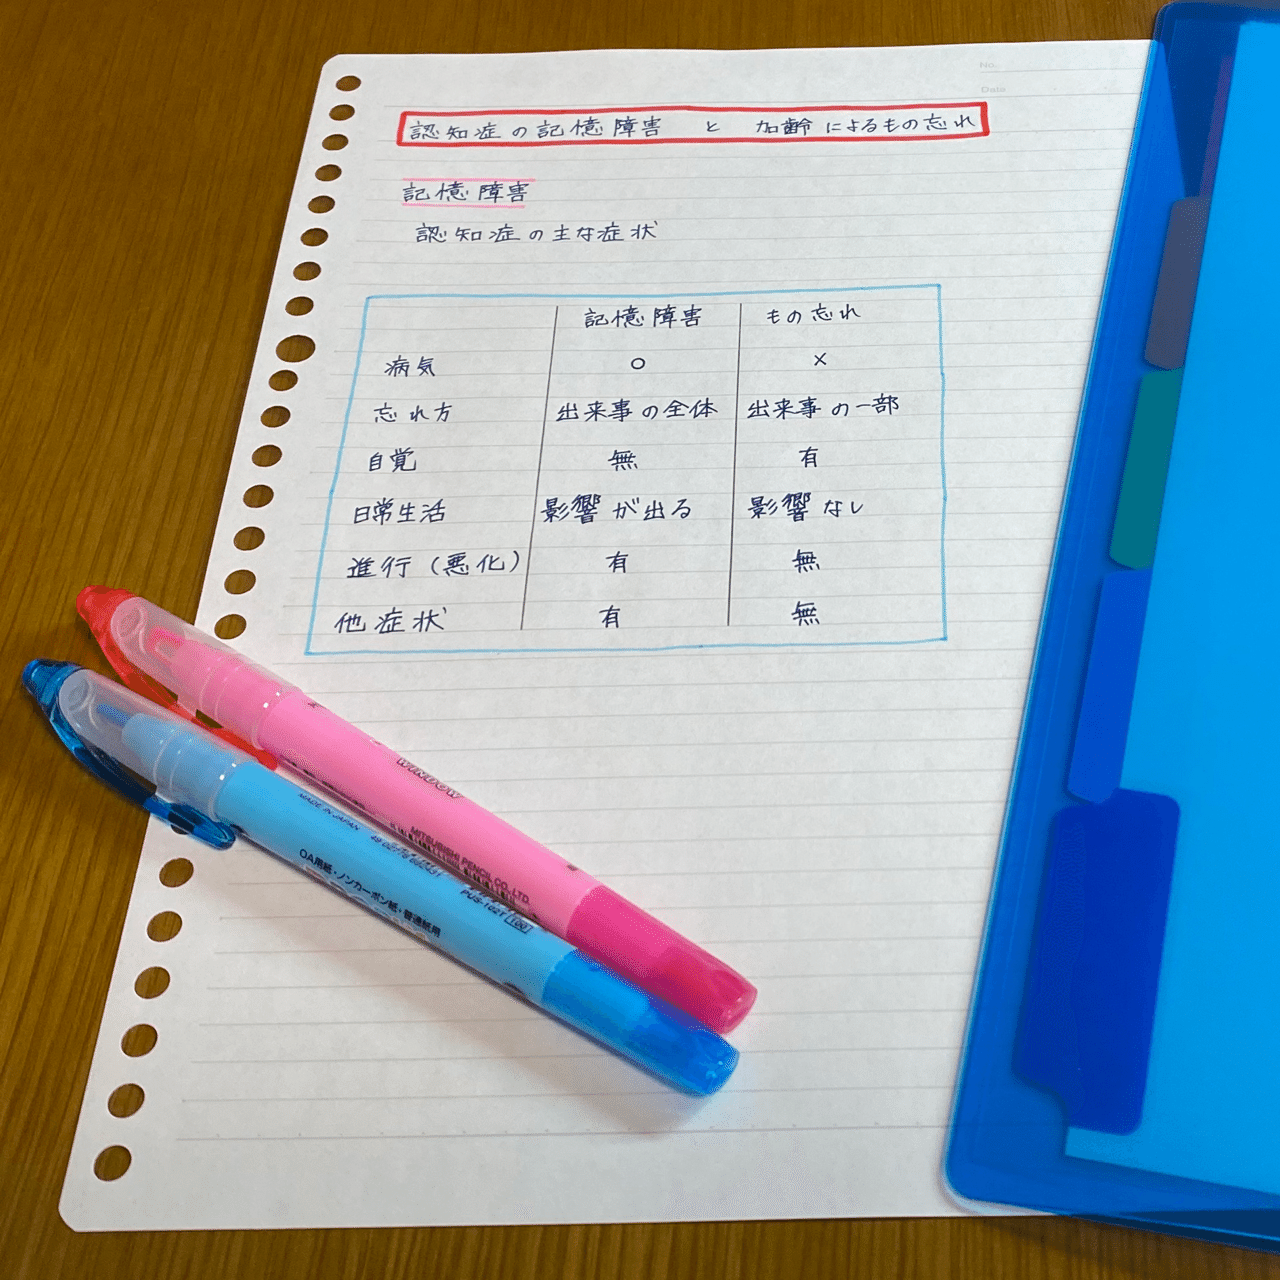 No.
Date
認知症の記憶障害 と 加齢によるもの忘れ
記憶障害
認知症の主な症状
記憶障害 もの忘れ
病気 ○ ×
忘れ方 出来事の全体 出来事の一部
自覚 無 有
日常生活 影響が出る 影響なし
進行（悪化） 有 無
他症状 有 無
WINDOW
MITSUBISHI PENCIL CO., LTD.
PUS-102T
MADE IN JAPAN
OA用紙・ノンカーボン紙・普通紙用